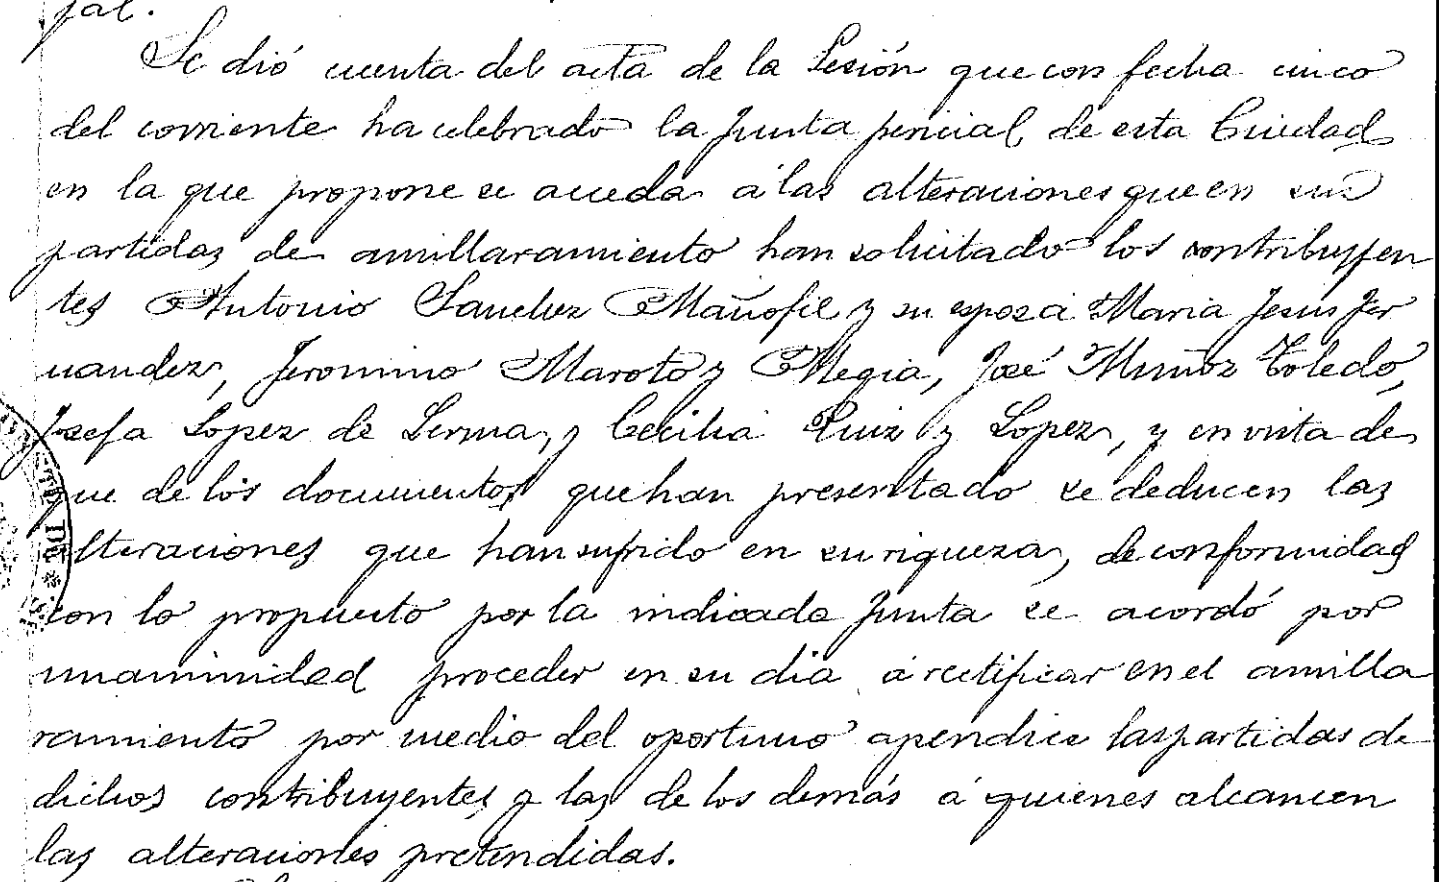 jal.
Se dió cuenta del acta de la Sesión que con fecha cinco
del corriente ha celebrado la Junta pericial de esta Ciudad
en la que propone se acceda á las alteraciones que en sus
partidas de amillaramiento han solicitado los contribuyen
tes Antonio Sanchez Mañofil y su esposa Maria Jesus Fer
nandez, Jeronimo Maroto y Megia, José Muñoz Toledo,
Josefa Lopez de Lerma, y Cecilia Ruiz y Lopez, y en vista de
que de los documentos que han presentado se deducen las
alteraciones que han sufrido en su riqueza, de conformidad
con lo propuesto por la indicada Junta se acordó por
unanimidad proceder en su dia á rectificar en el amilla
ramiento por medio del oportuno apendice las partidas de
dichos contribuyentes y las de los demás á quienes alcancen
las alteraciones pretendidas.